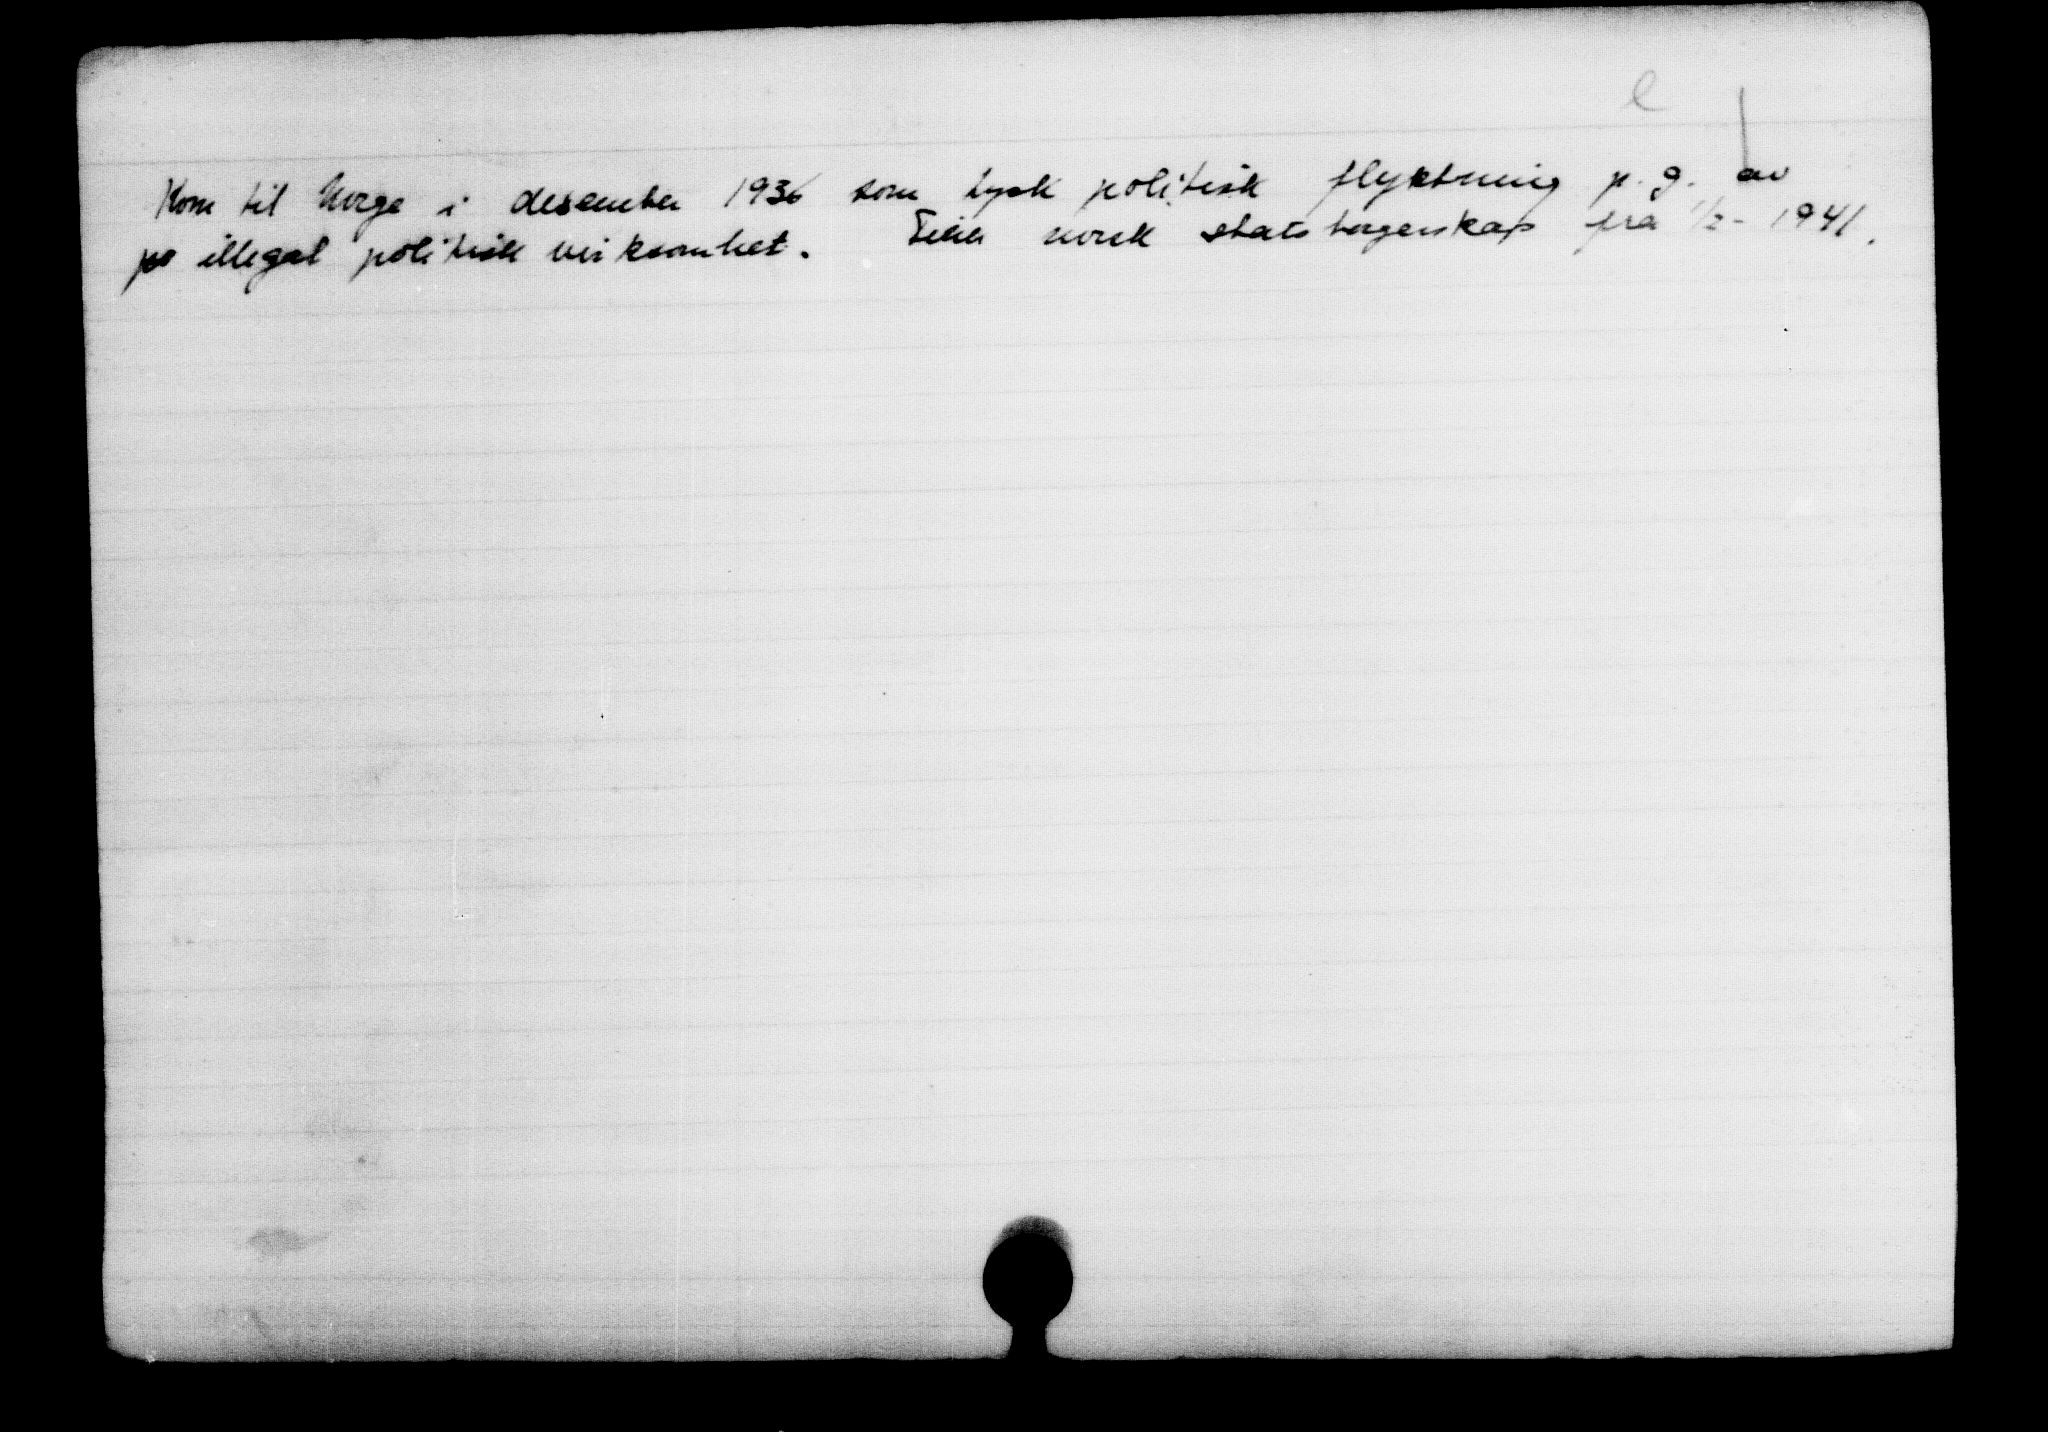 Kom til Norge i desember 1936 som tysk politisk flyktning p.g. av
illegal politisk virksomhet. norsk statsborgerskap fra 1/2-1941.